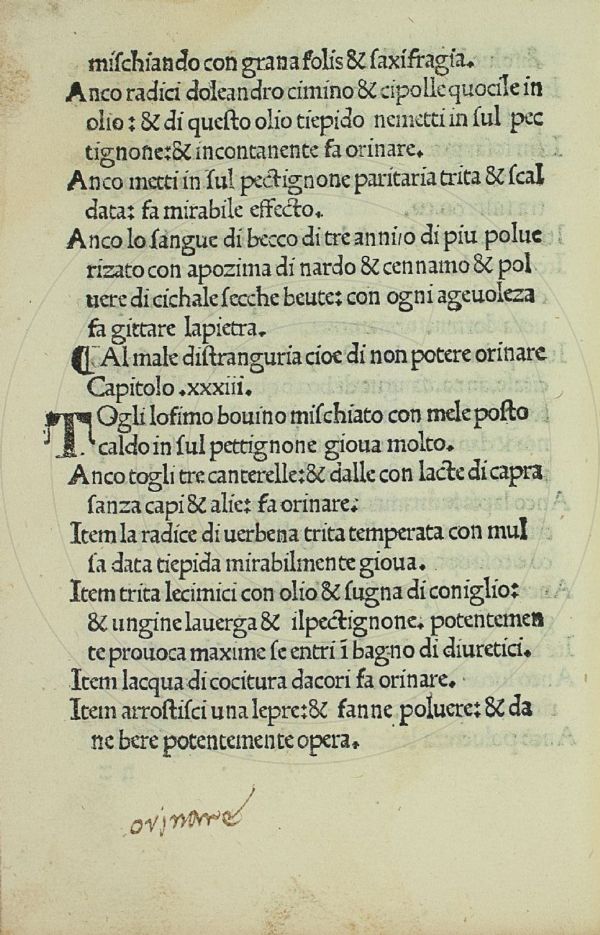 miſchiando con grana ſolis & ſaxifragia.
Anco radici doleandro cimino & cipolle quocile in
olio: & di queſto olio tiepido nemetti in ſul pec
tignone:& incontanente fa orinare.
Anco metti in ſul pectignone paritaria trita & ſcal
data: fa mirabile effecto.
Anco lo ſangue di becco di tre anni/o di piu polue
rizato con apozima di nardo & cennamo & pol
uere di cichale ſecche beute: con ogni ageuoleza
fa gittare lapietra.
¶ Al male diſtranguria cioe di non potere orinare
Capitolo .xxxiii.
TOgli loſimo bouino miſchiato con mele poſto
caldo in ſul pettignone gioua molto.
Anco togli tre canterelle:& dalle con lacte di capra
ſanza capi & alie: fa orinare:
Item la radice di uerbena trita temperata con mul
ſa data tiepida mirabilmente gioua.
Item trita lecimici con olio & ſugna di coniglio:
& ungine lauerga & ilpectignone. potentemen
te prouoca maxime ſe entri ī bagno di diuretici.
Item lacqua di cocitura dacori fa orinare.
Item arroſtiſci una lepre:& fanne poluere: & da
ne bere potentemente opera.
orinare